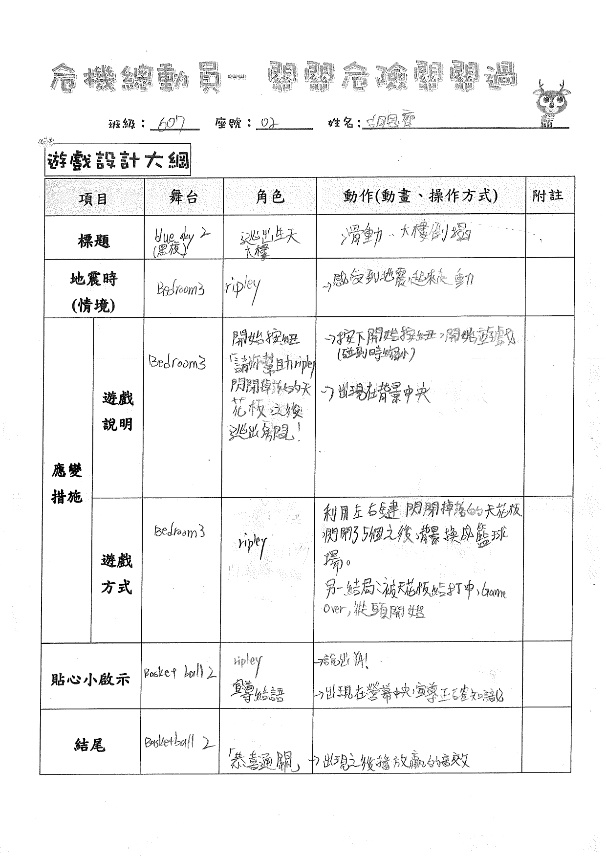 危機總動員-關關危險關關過
班級： 607 座號： 02 姓名：
遊戲設計大綱
項目 舞台 角色 動作(動畫、操作方式) 附註
標題 blue sky 2 逃出 滑動、大樓倒塌
(黑夜) 大樓
地震時 Bedroom3 ripley →感受到地震起來走動
(情境)
應變
措施
遊戲
說明
Bedroom3
開始按鈕
「請你幫助ripley
閃開掉落的天
花板之後
逃出房間！
→按下開始按鈕，開始遊戲
(碰到時縮小)
→出現在背景中央
遊戲
方式
Bedroom3
ripley
利用左右鍵閃開掉落的天花板
閃開了5個之後背景換成籃球
場。
另一結局、被天花板給打中，Game
Over，從頭開始
貼心小啟示 Basket ball 2 ripley →說出YA!
宣導 語 →出現在螢幕中央宣導正確知識
結尾 Basketball 2 「恭喜過關」 →出現之後播放贏的音效